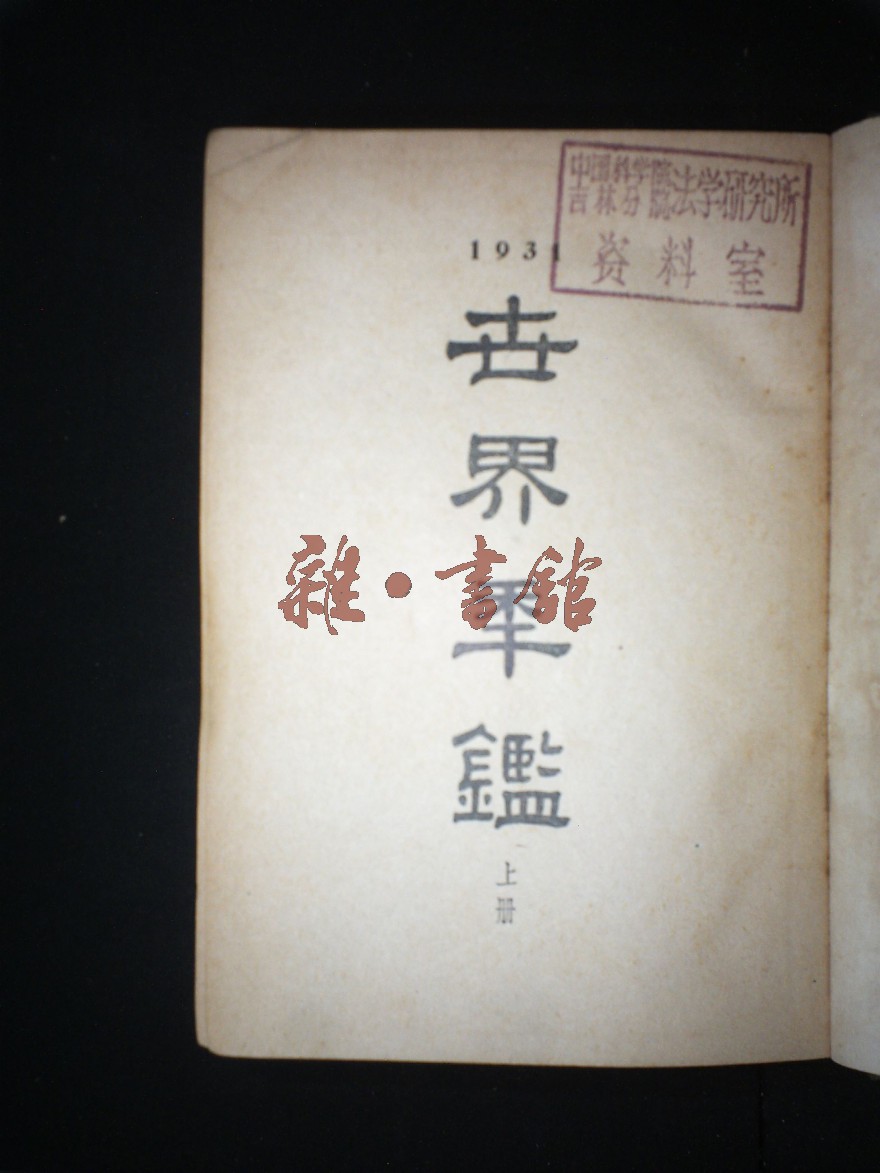 中国科学院
吉林分院法学研究所
资料室
1931
世界年鑑
雜·書館
上册